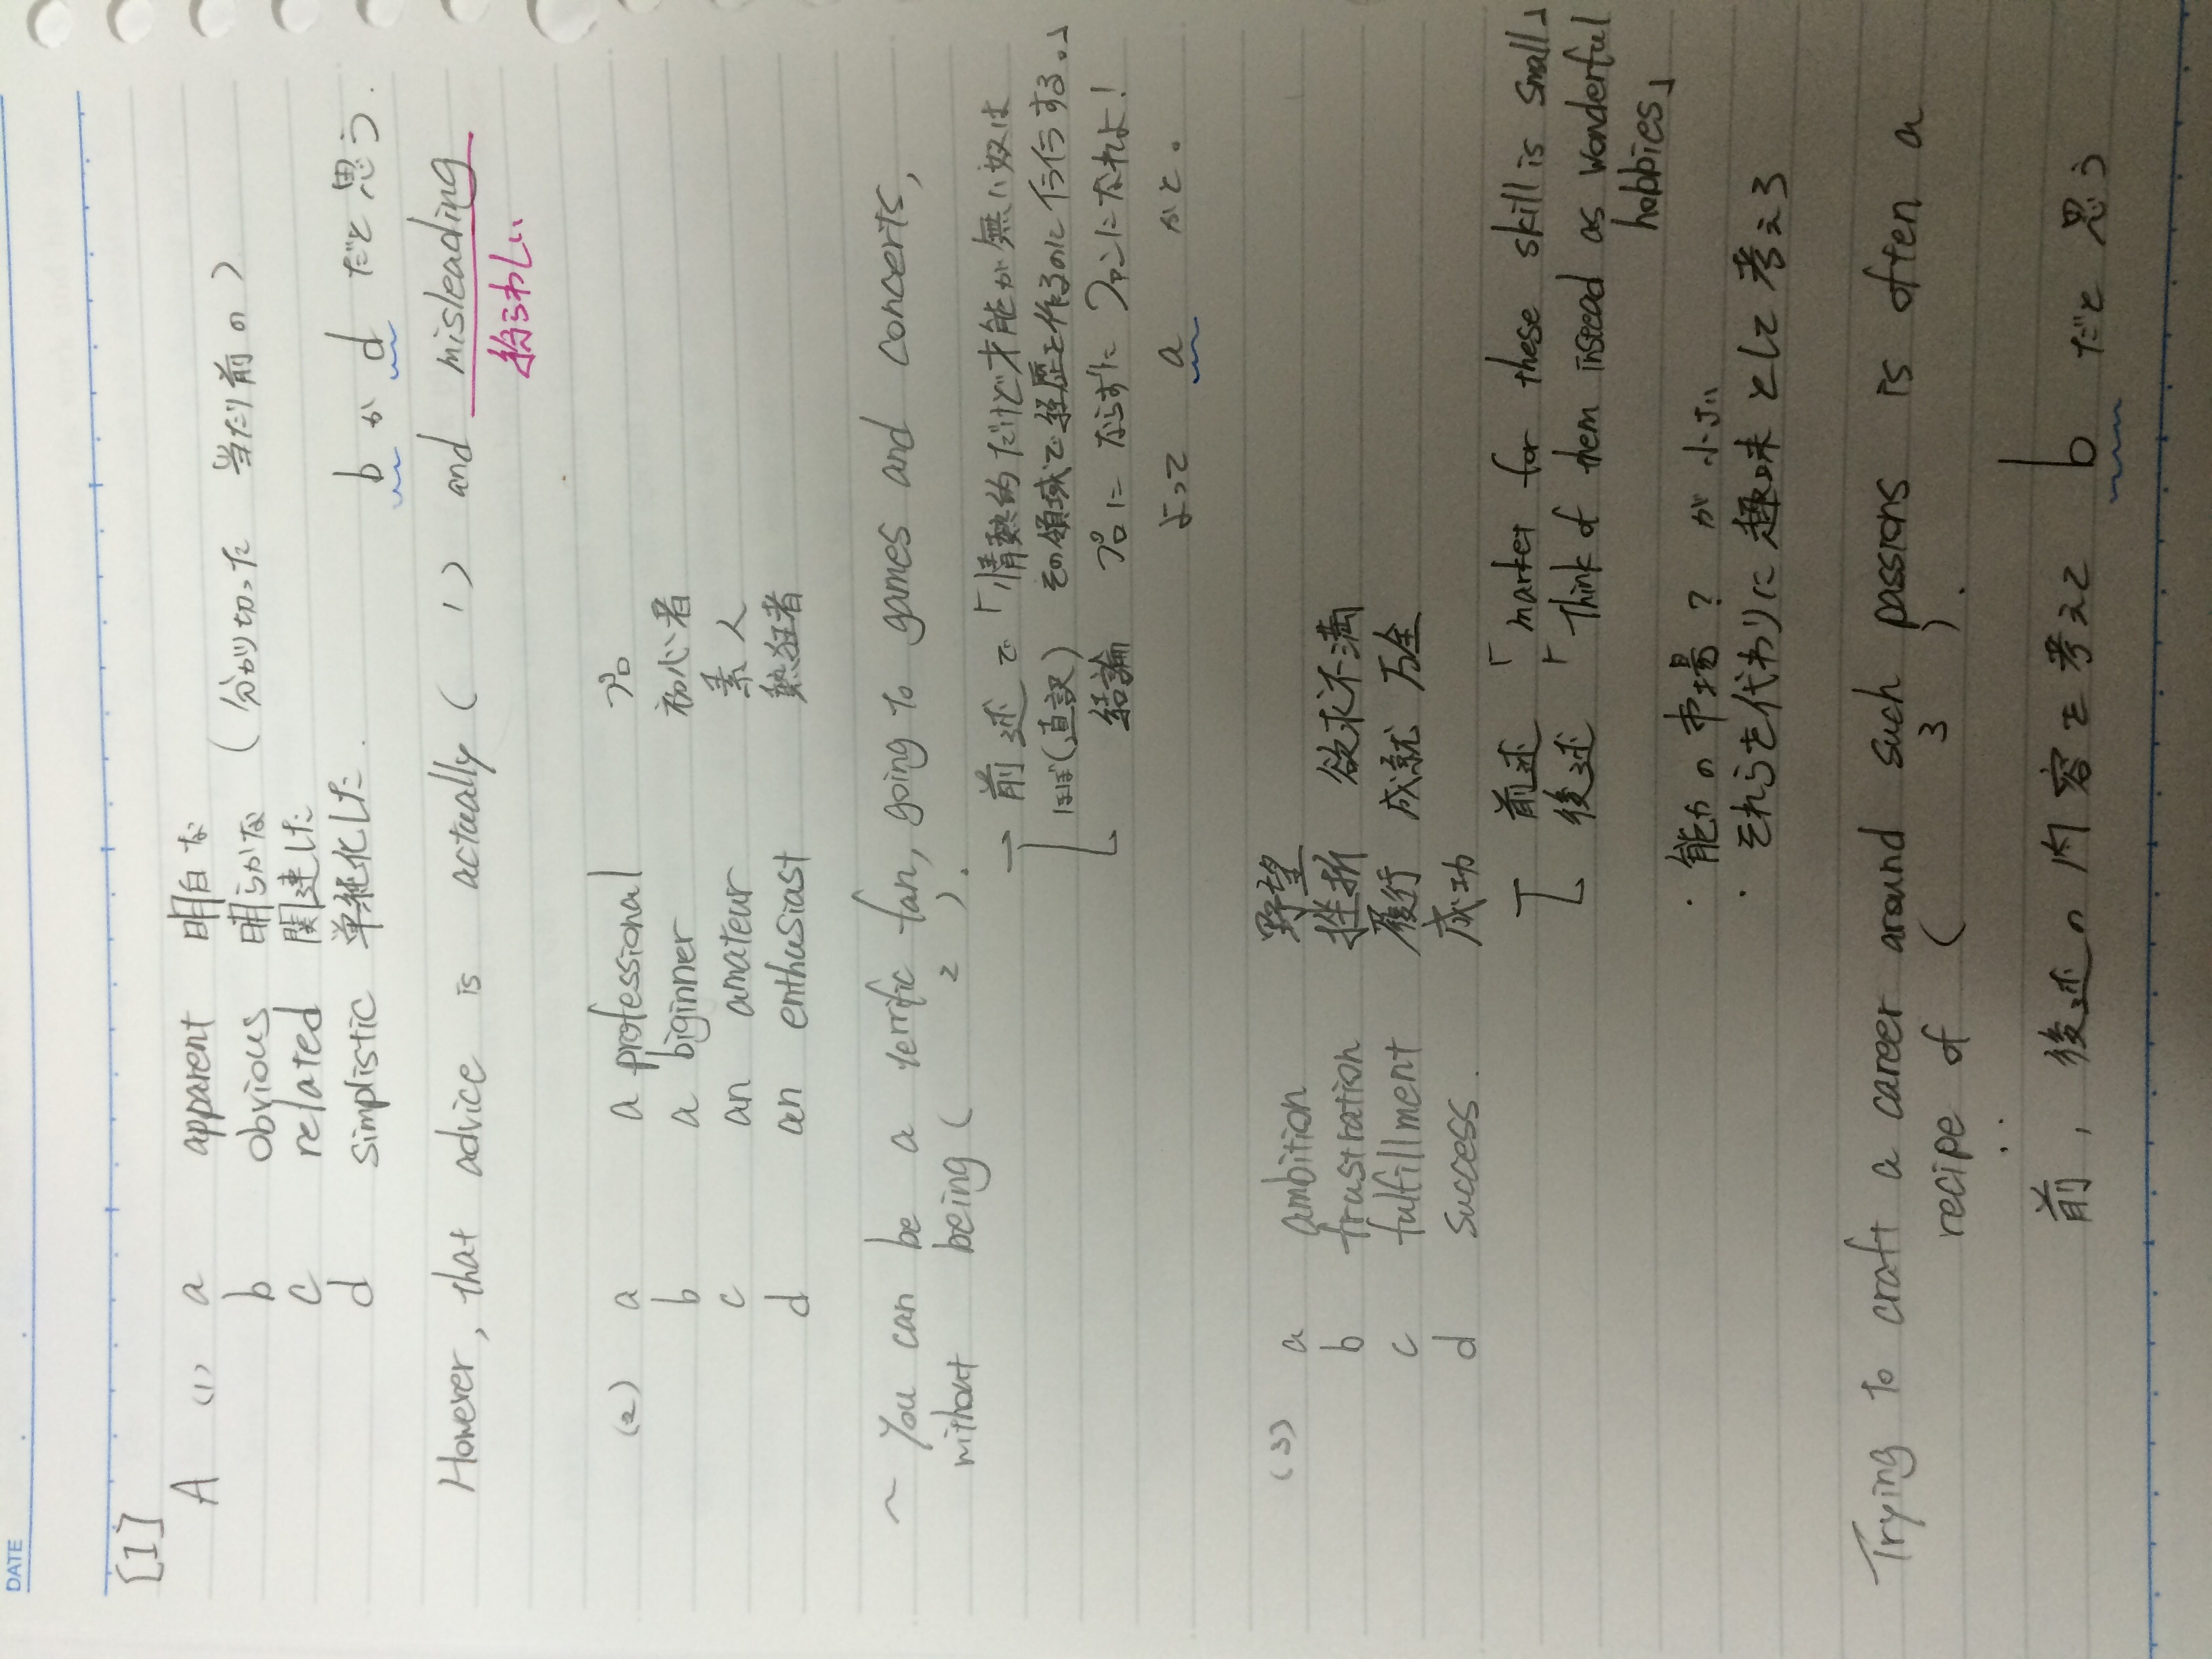 DATE
[1]
A (1) a apparent 明白な
b obvious 明らかな (分かり切った 当たり前の)
c related 関連した
d simplistic 単純化した.
b か d だと思う.
However, that advice is actually ( 1 ) and misleading
紛らわしい
(2) a a professional プロ
b a biginner 初心者
c an amateur 素人
d an enthusiast 熱狂者
~ You can be a terrific fan, going to games and concerts,
without being ( 2 ).
前述で「情熱的だけど才能が無い奴は
ほぼ(直訳) その領域で経歴を作るのに する。」
結論 プロにならずに ファンになれよ!
よって a かと。
(3) a ambition 野望
b frustration 挫折 欲求不満
c fulfillment 履行 成就 万全
d success. 成功
前述 「market for these skill is small」
後述 「Think of them instead as wonderful
hobbies」
・能力の市場? が小さい
・それらを代わりに趣味として考える
Trying to craft a career around such passions is often a
recipe of ( 3 ).
前, 後述の内容を考えて b だと思う